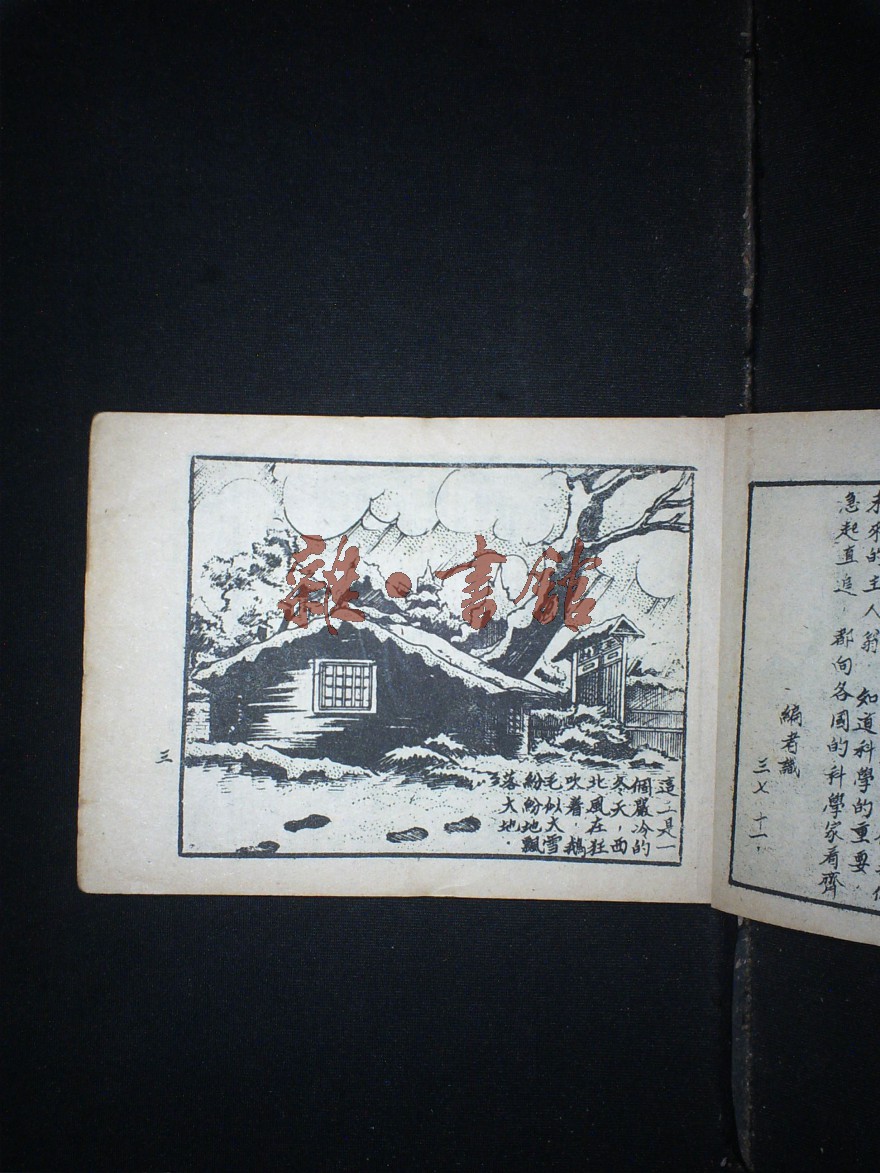 未來的主人翁 知道科學的重要
急起直追，都向各國的科學家看齊
編者識
三七、十一、
這二是一
個嚴冷的
冬天，西
北風在狂
吹着，鵝
毛似大雪
紛紛地飄
落大地．
三
雜·書館